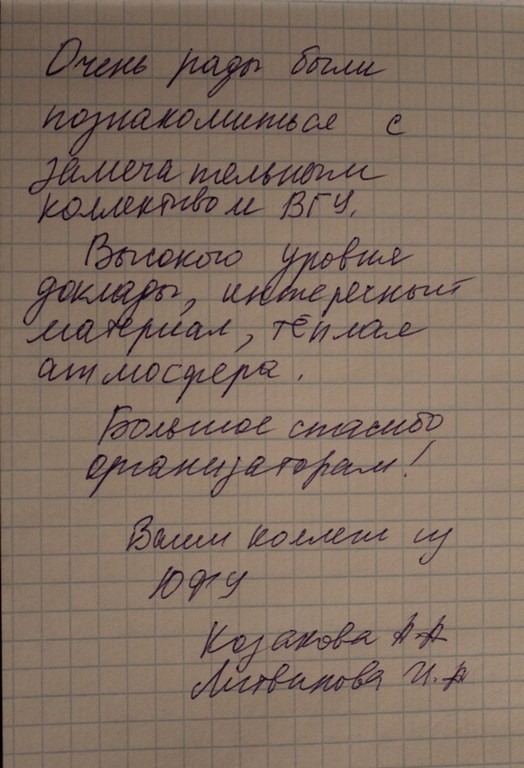 Очень рады были
познакомиться с
замечательным
коллективом ВГУ.
Высокого уровня
доклады, интеречный
материал, тёплая
атмосфера.
Большое спасибо
организаторам!
Ваши коллеги из
ЮФУ
Козакова А.А
Литвинова И.А